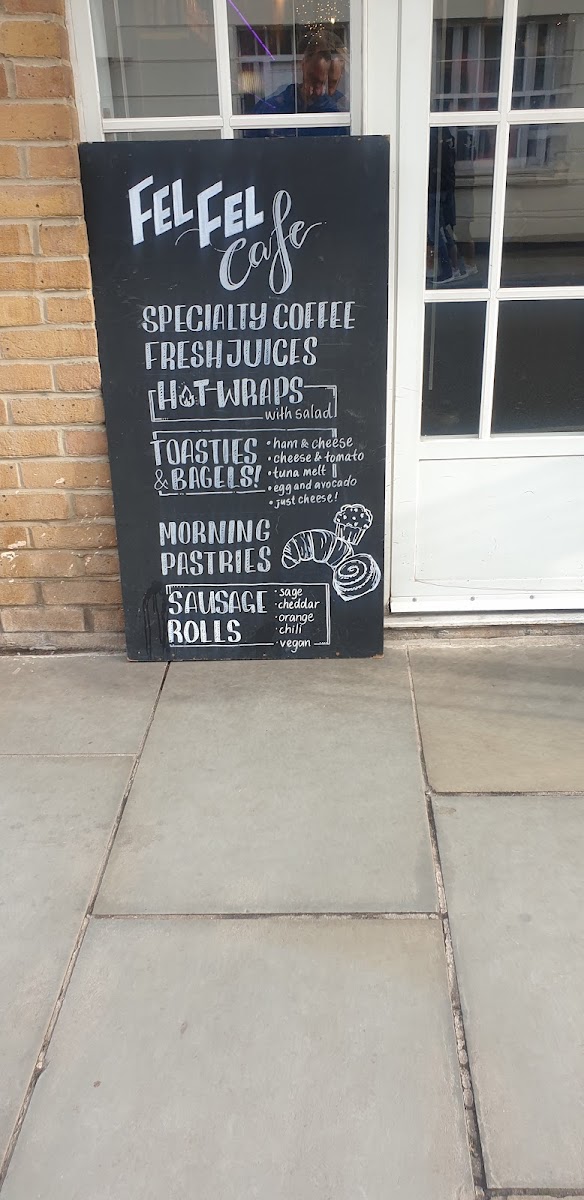 FEL FEL
Cafe
SPECIALTY COFFEE
FRESH JUICES
HOT WRAPS
with salad
TOASTIES
& BAGELS!
• ham & cheese
• cheese & tomato
• tuna melt
• egg and avocado
• just cheese!
MORNING
PASTRIES
SAUSAGE
ROLLS
• sage
• cheddar
• orange
• chili
• vegan